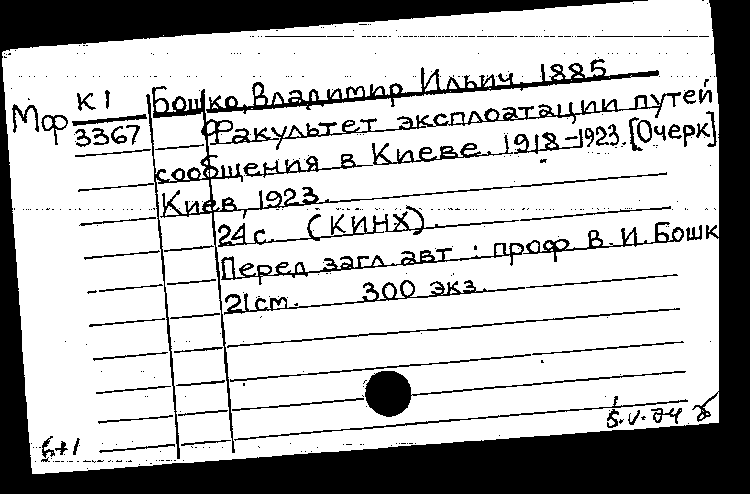 Мф К1 3367
Бошко, Владимир Ильич, 1885
Факультет эксплоатации путей
сообщения в Киеве. 1918-1923. [Очерк]
Киев, 1923.
24 с. (КИНХ).
Перед загл. авт : проф В. И. Бошк
21 ст. 300 экз.
5.V.04
6+1